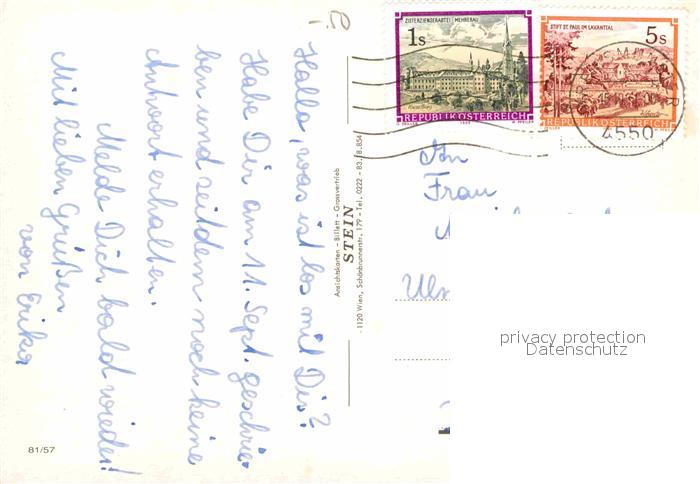 Hallo, was ist los mit Dir?
Habe Dir am 11. Sept. geschrie-
ben und seitdem noch keine
Antwort erhalten.
Melde Dich bald wieder!
Mit lieben Grüßen
von Erika
81/57
Ansichtskarten - Billett - Grossvertrieb
STEIN
1120 Wien, Schönbrunnerstr. 179 - Tel. 0222 - 83 8-854
ZISTERZIENSERABTEI MEHRERAU
1s
REPUBLIK ÖSTERREICH
STIFT ST. PAUL IM LAVANTTAL
5s
REPUBLIK ÖSTERREICH
4550
An
Frau
privacy protection
Datenschutz